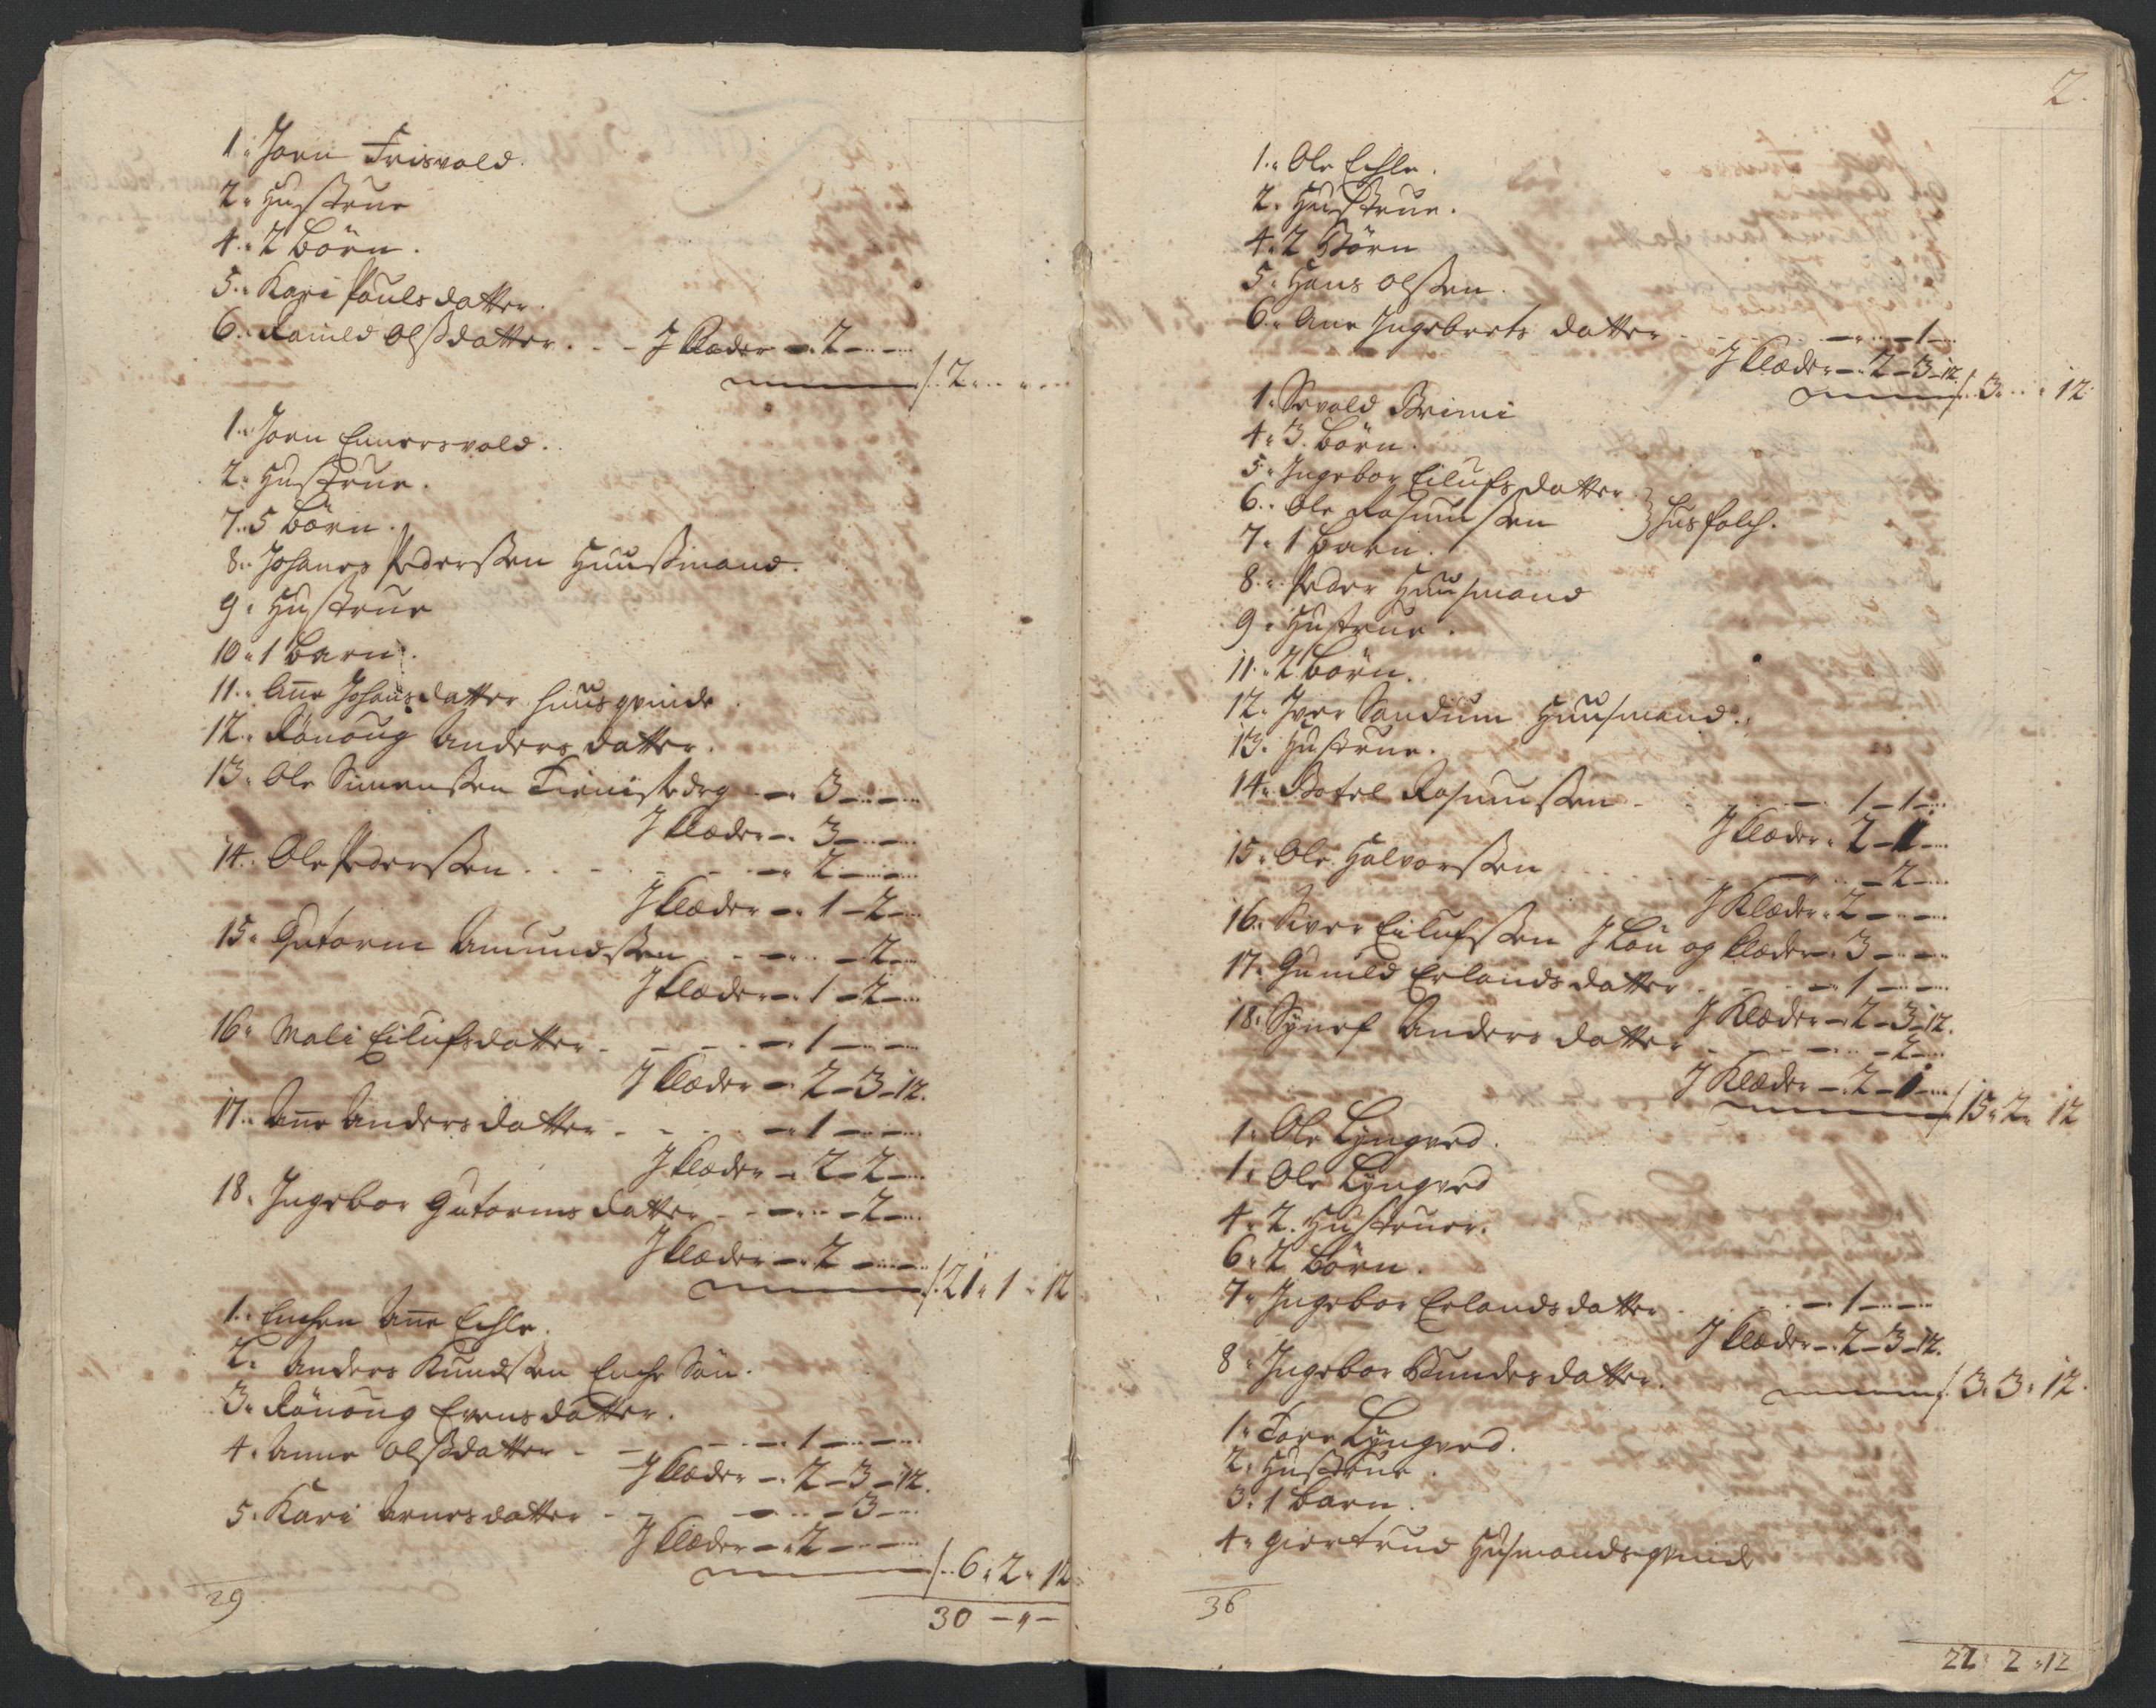 1. Joen Frisvold.
2. Hustrue
4. 2 börn.
5. Kari Poulsdatter.
6. Ranild Olsdatter. . - J Klæder - 2 - -
/. 2 . . . .
1. Joen Ennersvold.
2. Hustrue.
7. 5 börn.
8. Johanes Pedersen Huusmand.
9. Hustrue
10. 1 barn.
11. Ane Johansdatter huusqvinde
12. Rönoug Andersdatter.
13. Ole Simensen - 3 - -
J Klæder - 3 - -
14. Ole Pedersen . . - 2 - -
J Klæder - 1 - 2 -
15. Gutorm Amundsen - - 2 -
J Klæder - 1 - 2 -
16. Mali Eilufsdatter - 1 - -
J Klæder - 2 - 3 - 12.
17. Ane Andersdatter - 1 - -
J Klæder - 2 - 2 -
18. Ingebor Gutormsdatter - - 2 -
J Klæder - 2 - -
/. 21. 1. 12
1. Enchen Ane
2. Anders Knudsen Enche Sön.
3. Rönoug Evensdatter.
4. Anne Olsdatter - 1 - -
J Klæder - 2 - 3 - 12.
5. Kari Arnesdatter - - 3 -
J Klæder - 2 - -
/. 6. 2. 12
29
30 - " -
2.
1. Ole
2. Hustrue.
4. 2 Börn
5. Hans Olsen.
6. Ane Ingebretsdatter - - 1 -
J Klæder - 2 - 3 - 12. /. 3. . . 12.
1. Sevald Brimi
4. 3. börn.
5. Ingebor Eilufsdatter
6. Ole Rasmussen } Husfolch.
7. 1 barn.
8. Peder Huusmand
9. Hustrue.
11. 2 börn.
12. Iver Sandum Huusmand.
13. Hustrue.
14. Botel Rasmussen - 1 - 1 -
J Klæder. 2 - 1 -
15. Ole Halvorsen - - 2 -
J Klæder. 2 - -
16. Siver Eilufsen J Lön og Klæder. 3 - -
17. Gunild Erlandsdatter - 1 - -
J Klæder - 2 - 3 - 12.
18. Synef Andersdatter - - 2 -
J Klæder - 2 - 1 -
/. 15. 2. 12
1. Ole Lyngved.
1. Ole Lyngved
4. 2. Hustruer.
6. 2 börn.
7. Ingebor Erlandsdatter - 1 - -
J Klæder - 2 - 3 - 12.
8. Ingebor datter. /. 3. 3. 12.
1. Tore Lyngved.
2. Hustrue.
3. 1 barn.
4. Giertrud Husmandsqvinde
36
22. 2. 12